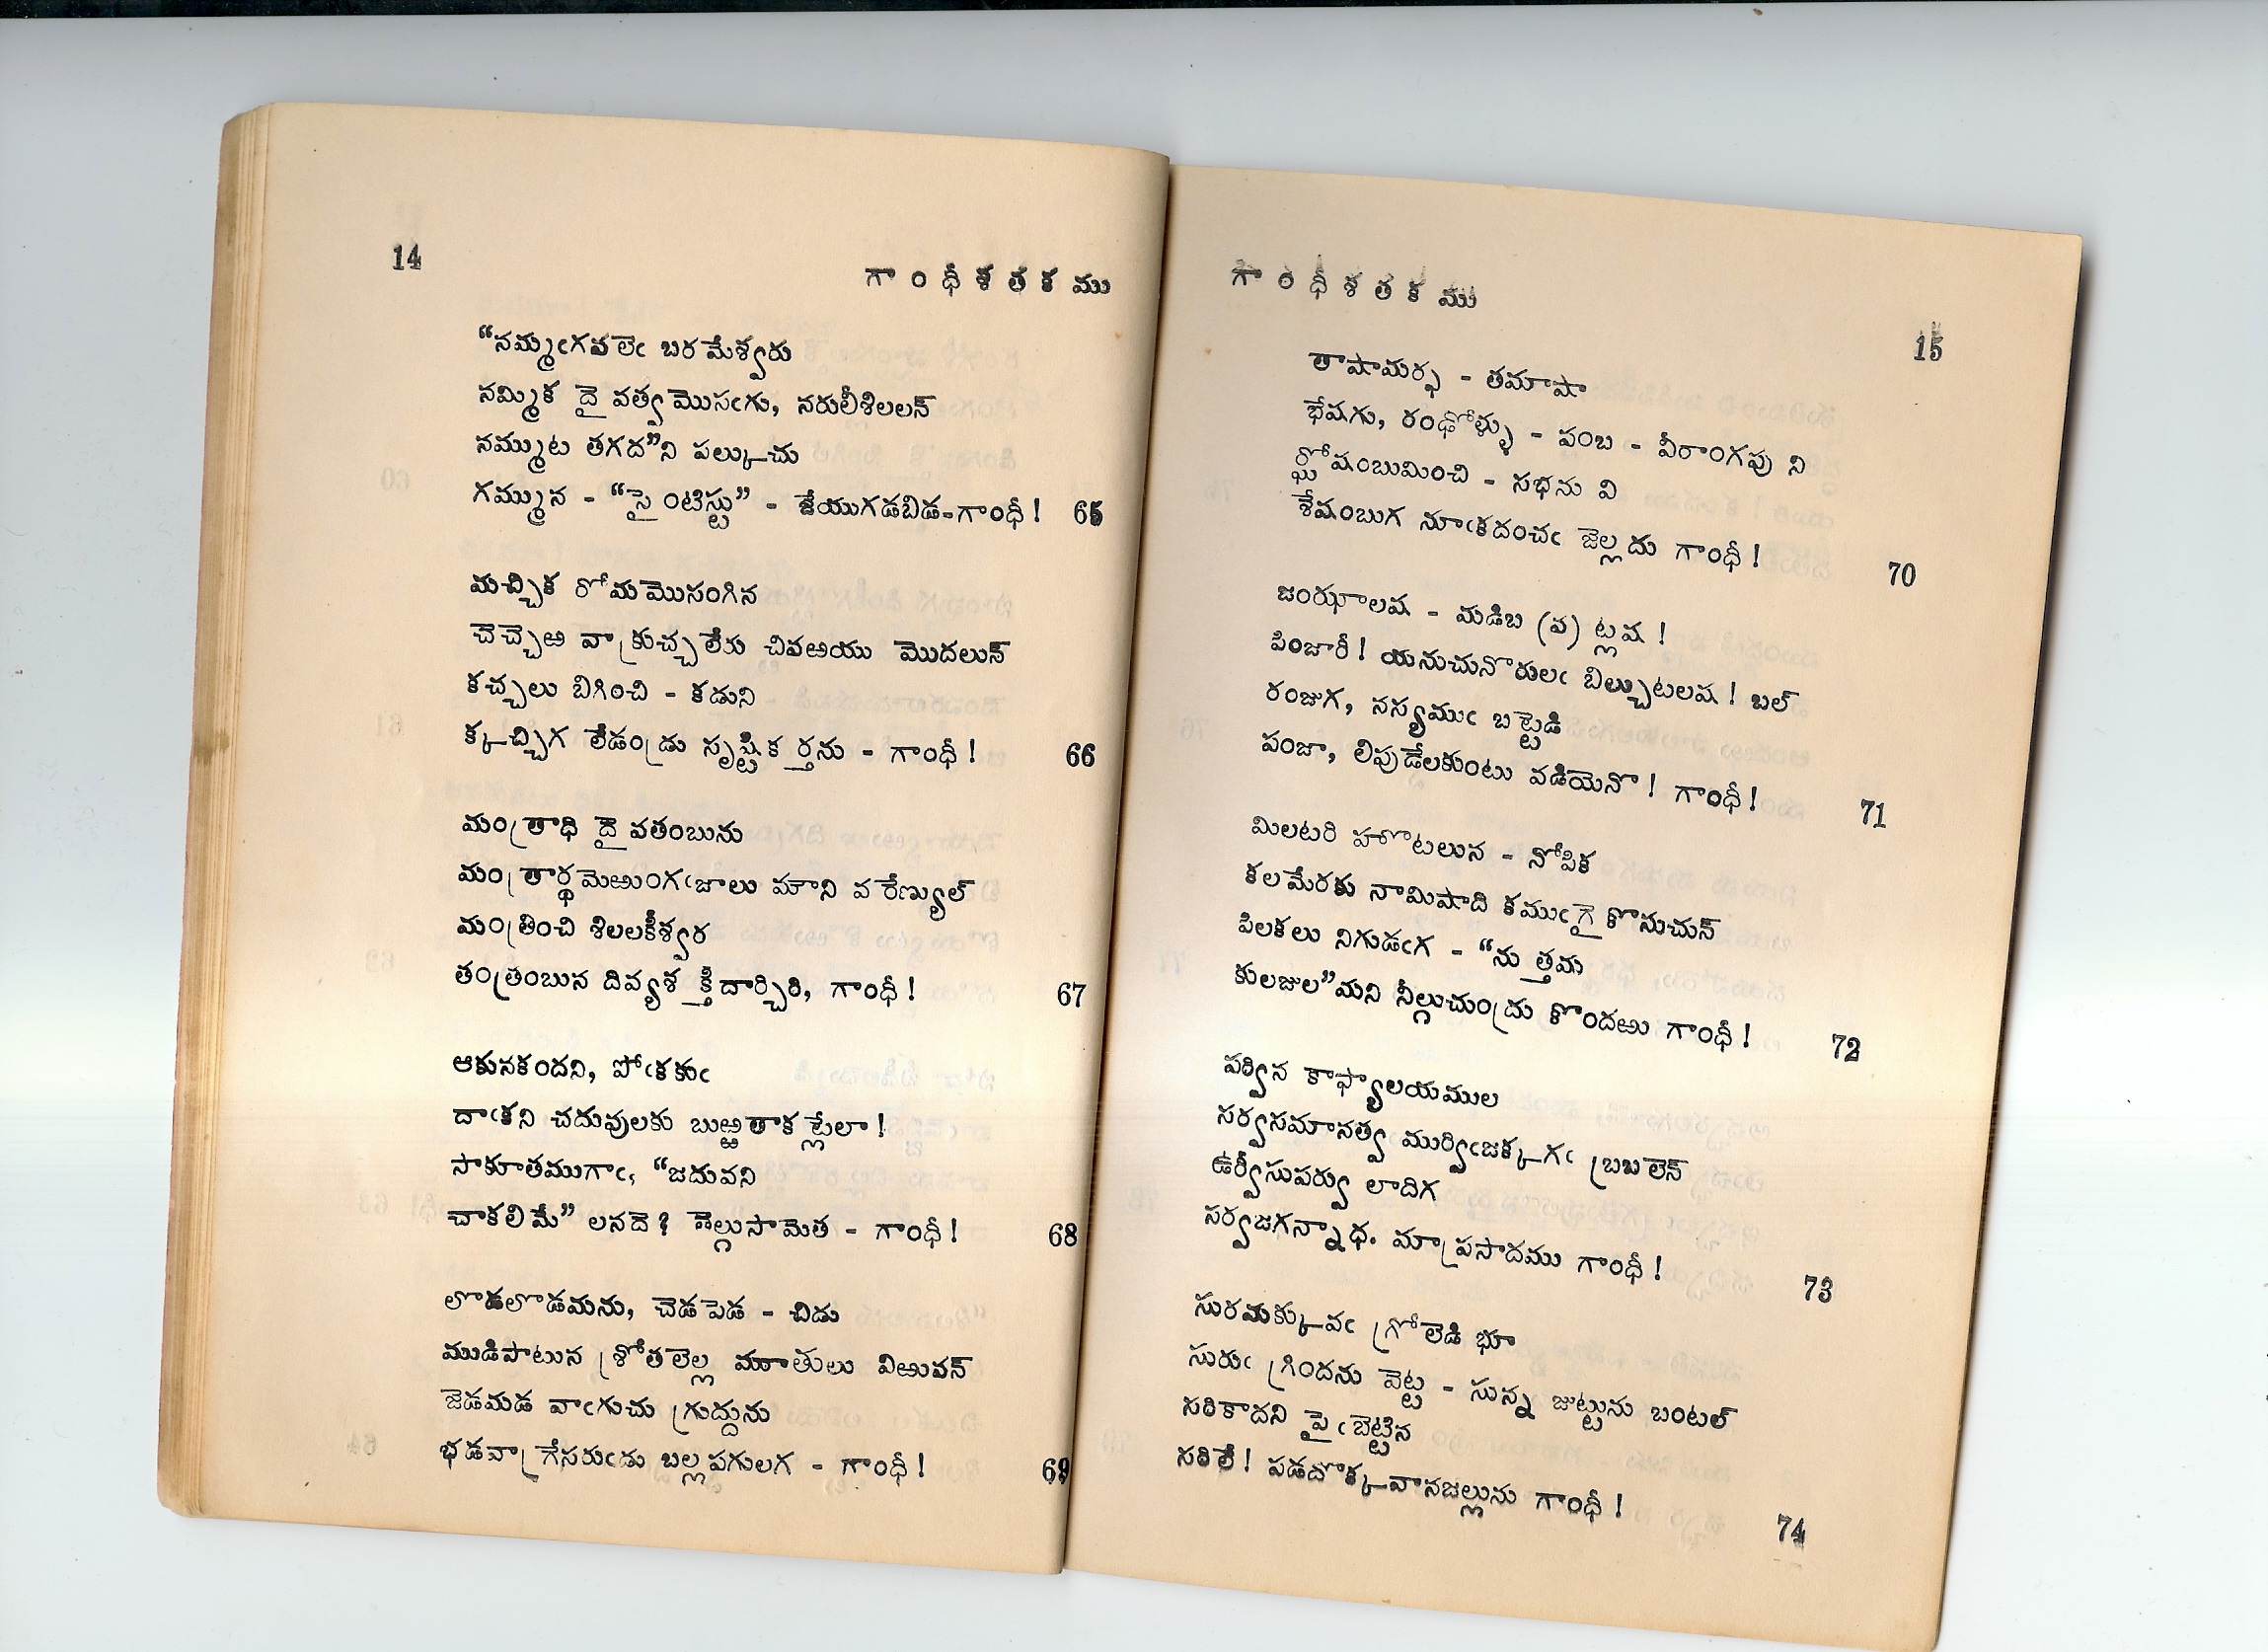 14
గాంధీశతకము
“నమ్మఁగవలెఁ బరమేశ్వరు
నమ్మిక దైవత్వమొసఁగు, నరులీశిలలన్
నమ్ముట తగద”ని పల్కుచు
గమ్మున - “సైంటిస్టు” - జేయుగడబిడ-గాంధీ! 65
మచ్చిక రోమమొసంగిన
చెచ్చెఱ వాక్రుచ్చలేరు చివఱయు మొదలున్
కచ్చలు బిగించి - కడుని
క్కచ్చిగ లేడంద్రు సృష్టికర్తను - గాంధీ! 66
మంత్రాధి దైవతంబును
మంత్రార్థమెఱుంగఁజాలు మౌని వరేణ్యుల్
మంత్రించి శిలలకీశ్వర
తంత్రంబున దివ్యశక్తిదార్చిరి, గాంధీ! 67
ఆకునకందని, పోఁకకుఁ
దాఁకని చదువులకు బుఱ్ఱతాకట్లేలా!
సాకూతముగాఁ, “జదువని
చాకలిమే” లనదె? తెల్గుసామెత - గాంధీ! 68
లొడలొడమను, చెడపెడ - చిడు
ముడిపాటున శ్రోతలెల్ల మూతులు విఱువన్
జెడమడ వాఁగుచు గ్రుద్దును
భడవాగ్రేసరుఁడు బల్లపగులగ - గాంధీ! 69
గాంధీశతకము
15
తాషామర్ఫ - తమాషా
భేషగు, రండోళ్ళు - పంబ - వీరాంగపు ని
ర్ఘోషంబుమించి - సభను వి
శేషంబుగ నూఁకదంచఁ జెల్లదు గాంధీ! 70
జంఝాలష - మడిబ (వ) ట్లష!
పింజారీ! యనుచునొరులఁ బిల్చుటలష! బల్
రంజుగ, నస్యముఁ బట్టెడి
పంజా, లిపుడేలకుంటు వడియెనొ! గాంధీ! 71
మిలటరి హొటలున - నోపిక
కలమేరకు నామిషాది కముఁగైకొనుచున్
పిలకలు నిగుడఁగ - “ను త్తమ
కులజుల”మని నీల్గుచుంద్రు కొందఱు గాంధీ! 72
పర్విన కాఫ్యాలయముల
సర్వసమానత్వ ముర్విఁజక్కగఁ బ్రబలెన్
ఉర్వీసుపర్వు లాదిగ
సర్వజగన్నాధ. మాప్రసాదము గాంధీ! 73
సురమక్కువఁ గ్రోలెడి భూ
సురుఁ గ్రిందను వెట్ట - సున్న జుట్టును బంటల్
సరికాదని పైఁబెట్టిన
సరిలే! పడదొక్కవానజల్లును గాంధీ! 74